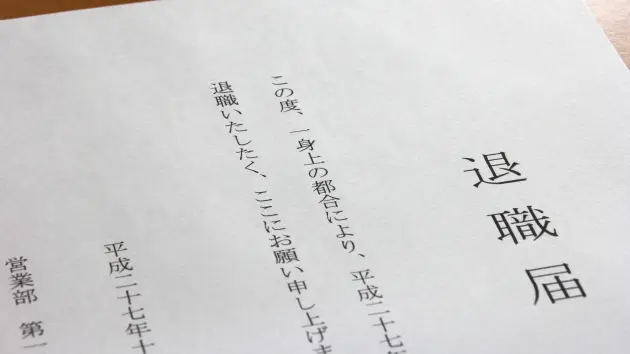 退職届
この度、一身上の都合により、平成二十七年
退職いたしたく、ここにお願い申し上げま
平成二十七年十
営業部 第一